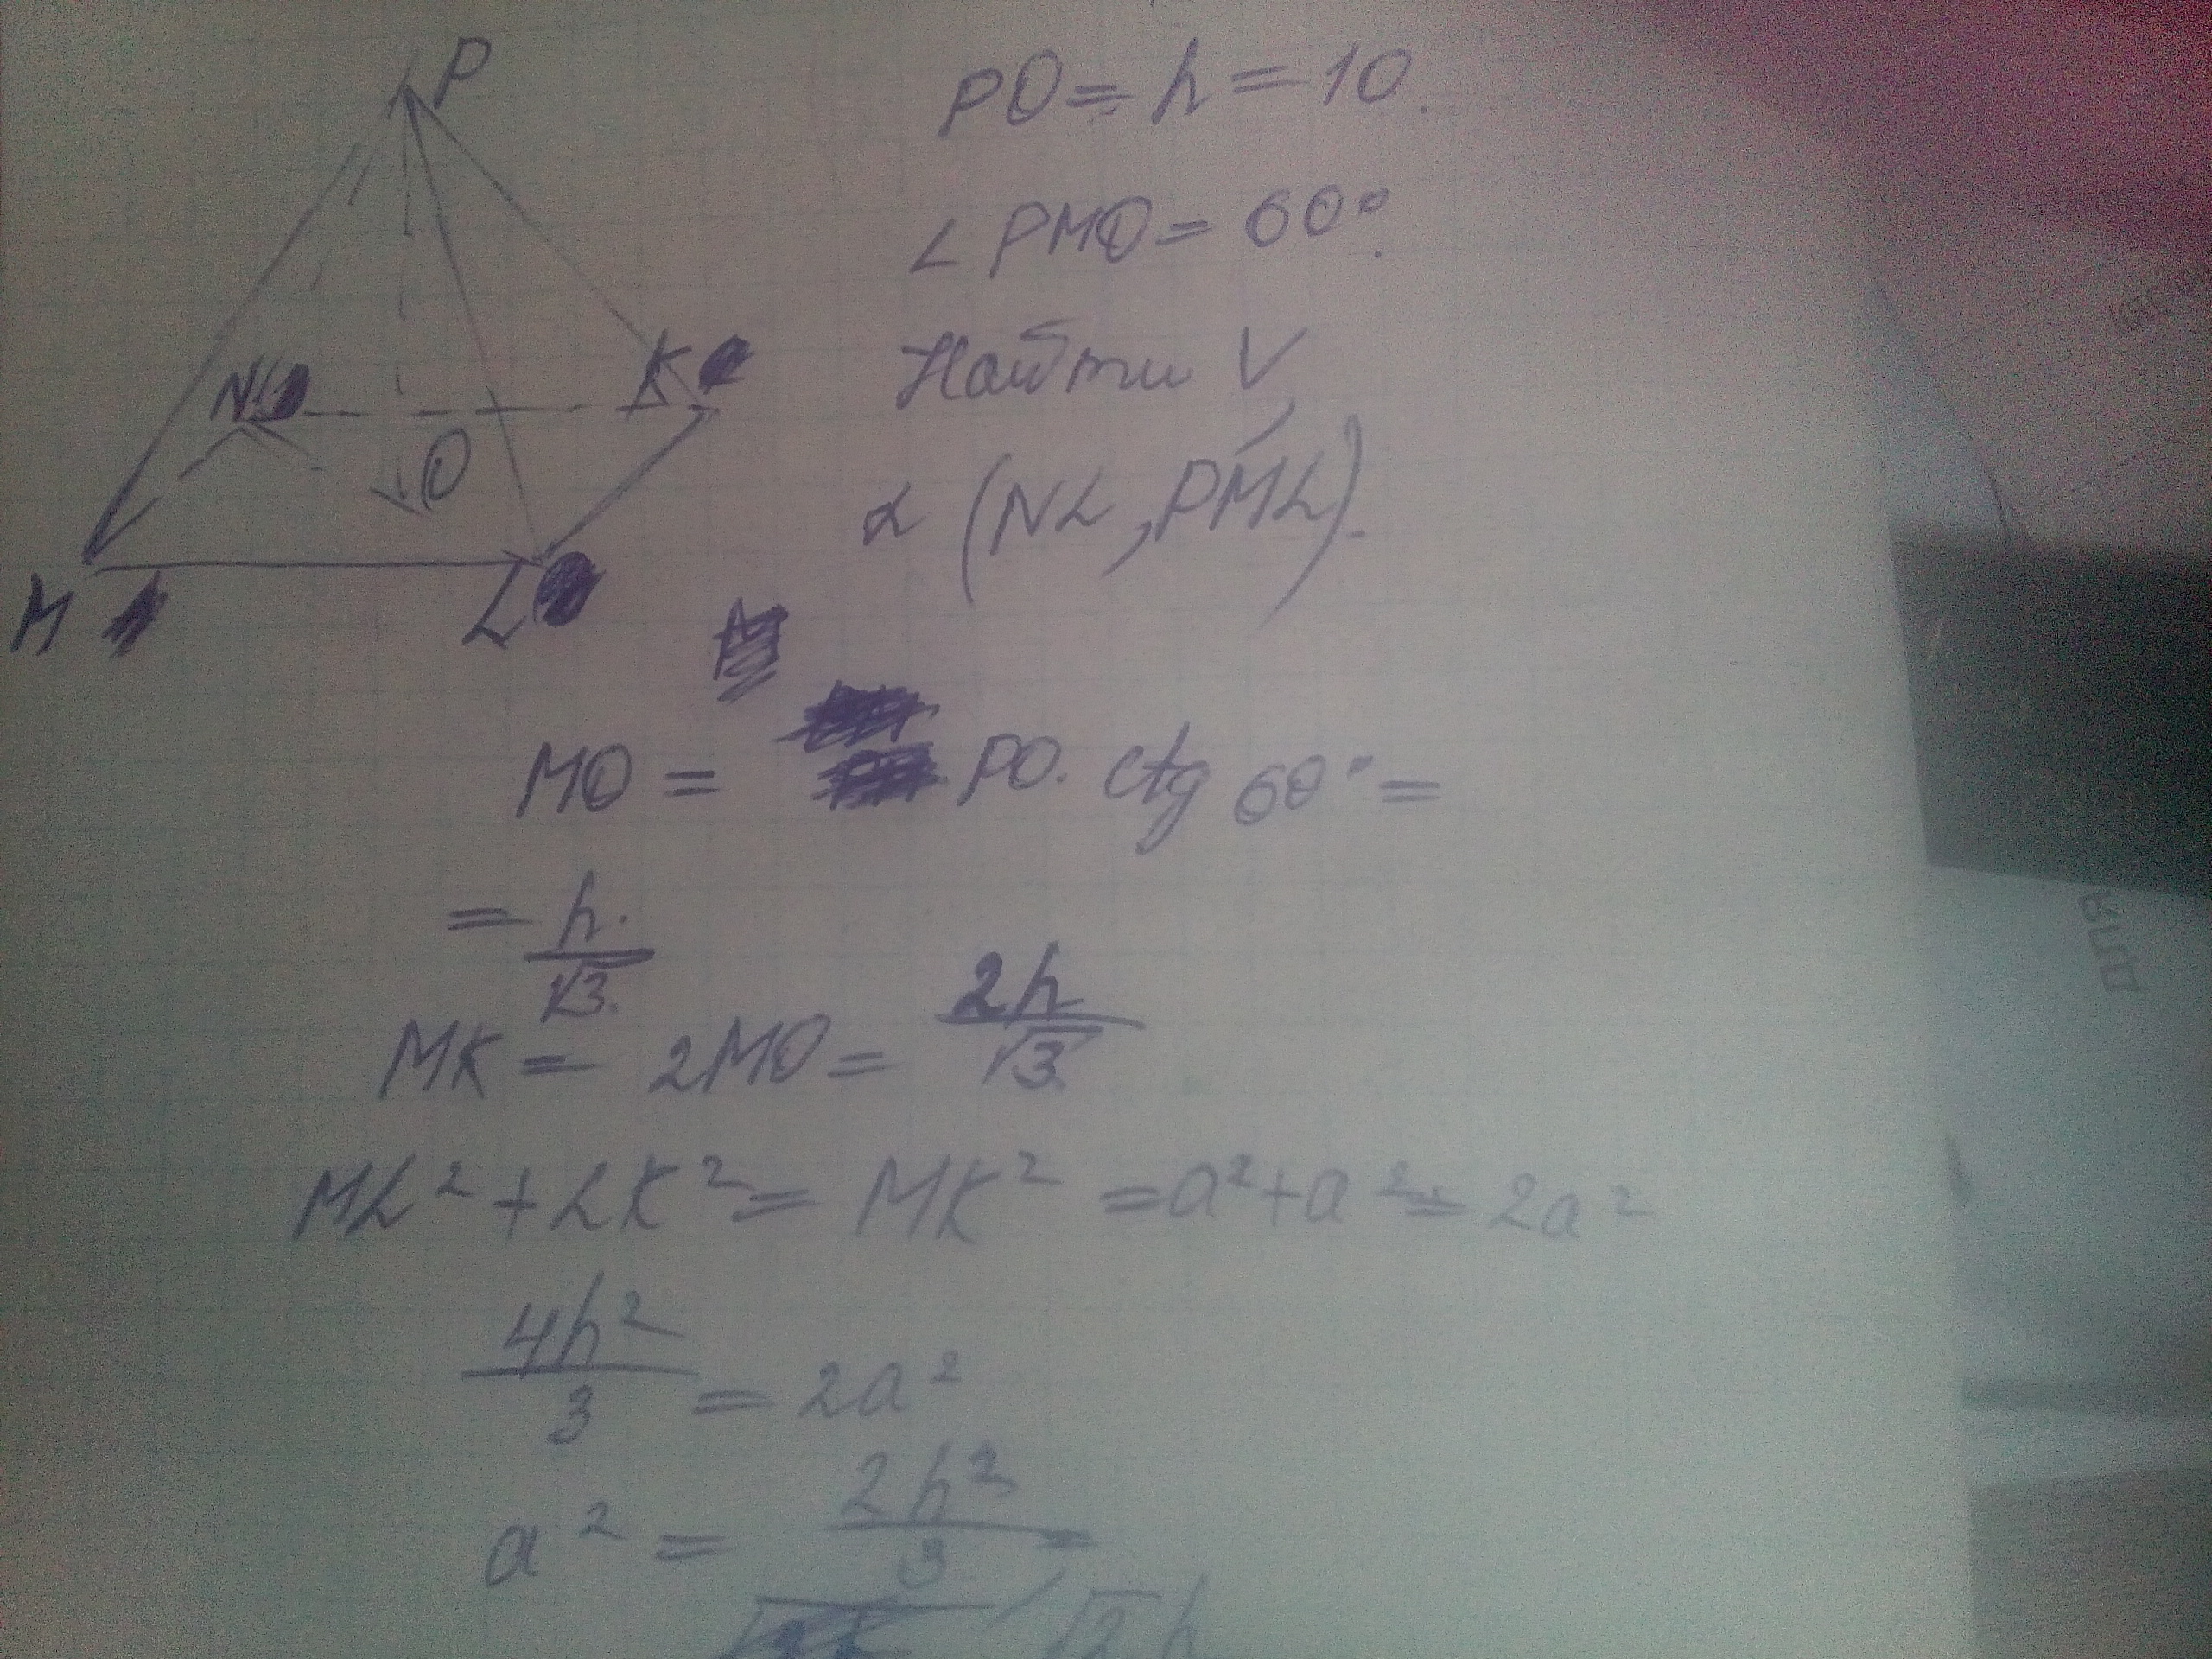 P
PO = h = 10.
∠ PMO = 60°.
N
K
Найти V,
O
∠ (NL, PML).
M
L
MO = PO · ctg 60° =
= h/√3.
MK = 2MO = 2h/√3
ML² + LK² = MK² = a² + a² = 2a²
4h²/3 = 2a²
a² = 2h²/3 =
√2 h
для